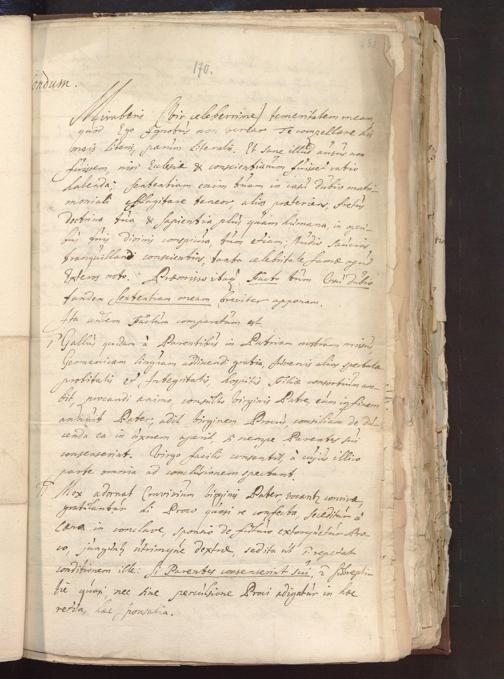 170.
ondum.
Miraberis (vir celeberrime) temeritatem meam,
quod Ego Ignotus non verear Te compellare his
meis literis, parum literatis. Et sane illud ausus non
fuissem, nisi Ecclesiæ & conscientiarum fuisset ratio
habenda; Sententiam enim tuam in casu dubio matri
moniali efflagitare teneor, alios præteriens, fretus
doctrina tua & sapientia plus quam humana, in
divini conspicua, tum etiam, studio
tranquillandi conscientias, tanta celebritate famæ apud
Exteros noto. Præmisso itaq Facto tum Dubio
tandem Sententiam meam breviter apponam.
Ita autem Factum comparatum est
Gallus quidam à Parentibus in Patriam nostram missus
Germanicam linguam addiscendi gratia, Juvenis alias spectatæ
probitatis et Integritatis, Hospitis Filiæ consortium am
bit procandi animo, consultus virginis Pater, eum in finem
annuit Pater, adit virginem Procus, consilium de du
cenda ea in Uxorem aperit, si nempe Parentes sui
consenserint. Virgo facilis consentit, à cujus illico
parte omnia ad conclusionem spectant.
Mox adornat Convivium virginis Pater vocantur convivæ,
gratulantur hi Proco quasi re confecta, seceditur à
Cæna in conclave, sponsio de futuro extorquetur Pro
co, junguntur utrinque dextræ, sedita
conditionem ille: si Parentes consenserint sui,
tie quasi nec sine percussione Proci adigatur in hæc
verba, hæc sponsalia.